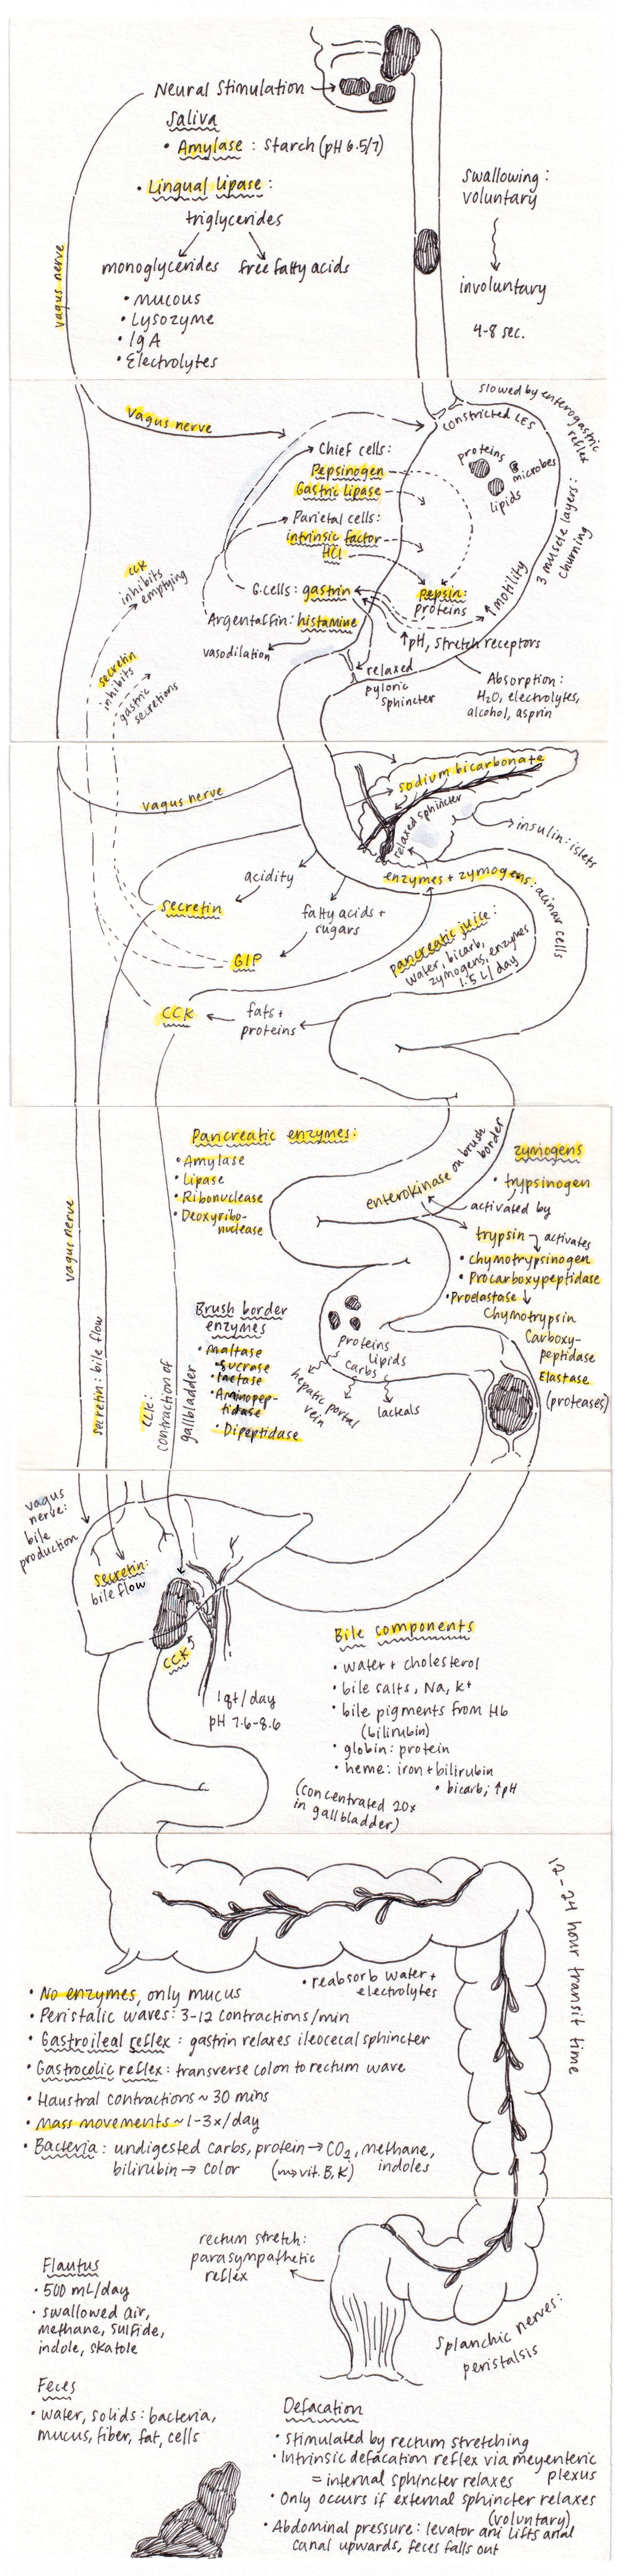 Neural Stimulation
Saliva
• Amylase : starch (pH 6.5/7)
• Lingual lipase :
triglycerides
monoglycerides free fatty acids
• mucous
• Lysozyme
• IgA
• Electrolytes
vagus nerve
swallowing :
voluntary
involuntary
4-8 sec.
vagus nerve
slowed by enterogastric
reflex
constricted LES
Chief cells:
Pepsinogen
Gastric lipase
Parietal cells:
intrinsic factor
HCl
G-cells: gastrin
Argentaffin: histamine
vasodilation
proteins
microbes
lipids
3 muscle layers:
churning
Pepsin:
proteins
↑ motility
↑pH, stretch receptors
relaxed
pyloric
sphincter
Absorption:
H2O, electrolytes,
alcohol, asprin
CCK
inhibits
emptying
secretin
inhibits
gastric
secretions
vagus nerve
sodium bicarbonate
relaxed sphincter
insulin: islets
enzymes + zymogens: acinar cells
acidity
secretin
fatty acids +
sugars
GIP
pancreatic juice:
water, bicarb,
zymogens, enzymes
1.5 L/day
CCK
fats+
proteins
Pancreatic enzymes:
• Amylase
• Lipase
• Ribonuclease
• Deoxyribo-
nuclease
enterokinase on brush
border
zymogens
• trypsinogen
activated by
trypsin activates
• chymotrypsinogen
• Procarboxypeptidase
• Proelastase ↓
Chymotrypsin
Carboxy-
peptidase
Elastase
(proteases)
vagus nerve
secretin: bile flow
CCK:
contraction of
gallbladder
Brush border
enzymes
• Maltase
• sucrase
• lactase
• Aminopep-
tidase
• Dipeptidase
proteins
lipids
carbs
hepatic portal
vein
lacteals
vagus
nerve:
bile
production
secretin:
bile flow
CCK
1qt/day
pH 7.6-8.6
Bile components
• water + cholesterol
• bile salts, Na, K+
• bile pigments from Hb
(bilirubin)
• globin: protein
• heme: iron + bilirubin
• bicarb; ↑pH
(concentrated 20x
in gallbladder)
12-24 hour transit time
• reabsorb water +
electrolytes
• No enzymes, only mucus
• Peristalic waves: 3-12 contractions/min
• Gastroileal reflex : gastrin relaxes ileocecal sphincter
• Gastrocolic reflex: transverse colon to rectum wave
• Haustral contractions ~ 30 mins
• Mass movements ~ 1-3x/day
• Bacteria : undigested carbs, protein → CO2, methane,
bilirubin → color (→vit. B, K) indoles
rectum stretch:
parasympathetic
reflex
Flautus
• 500 mL/day
• swallowed air,
methane, sulfide,
indole, skatole
splanchic nerves:
peristalsis
Feces
• water, solids: bacteria,
mucus, fiber, fat, cells
Defacation
• stimulated by rectum stretching
• Intrinsic defacation reflex via meyenteric
plexus
= internal sphincter relaxes
• Only occurs if external sphincter relaxes
(voluntary)
• Abdominal pressure: levator ani lifts anal
canal upwards, feces falls out